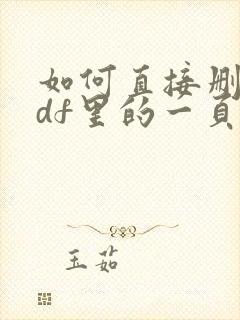 如何直接删
df里的一页
玉茹